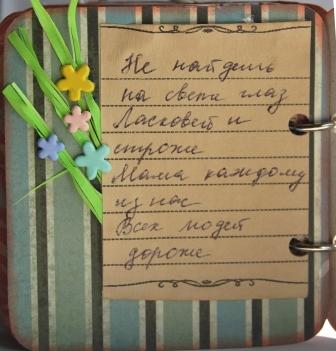 Не найдешь
на свете глаз
Ласковей и
строже
Мама каждому
из нас
Всех людей
дороже